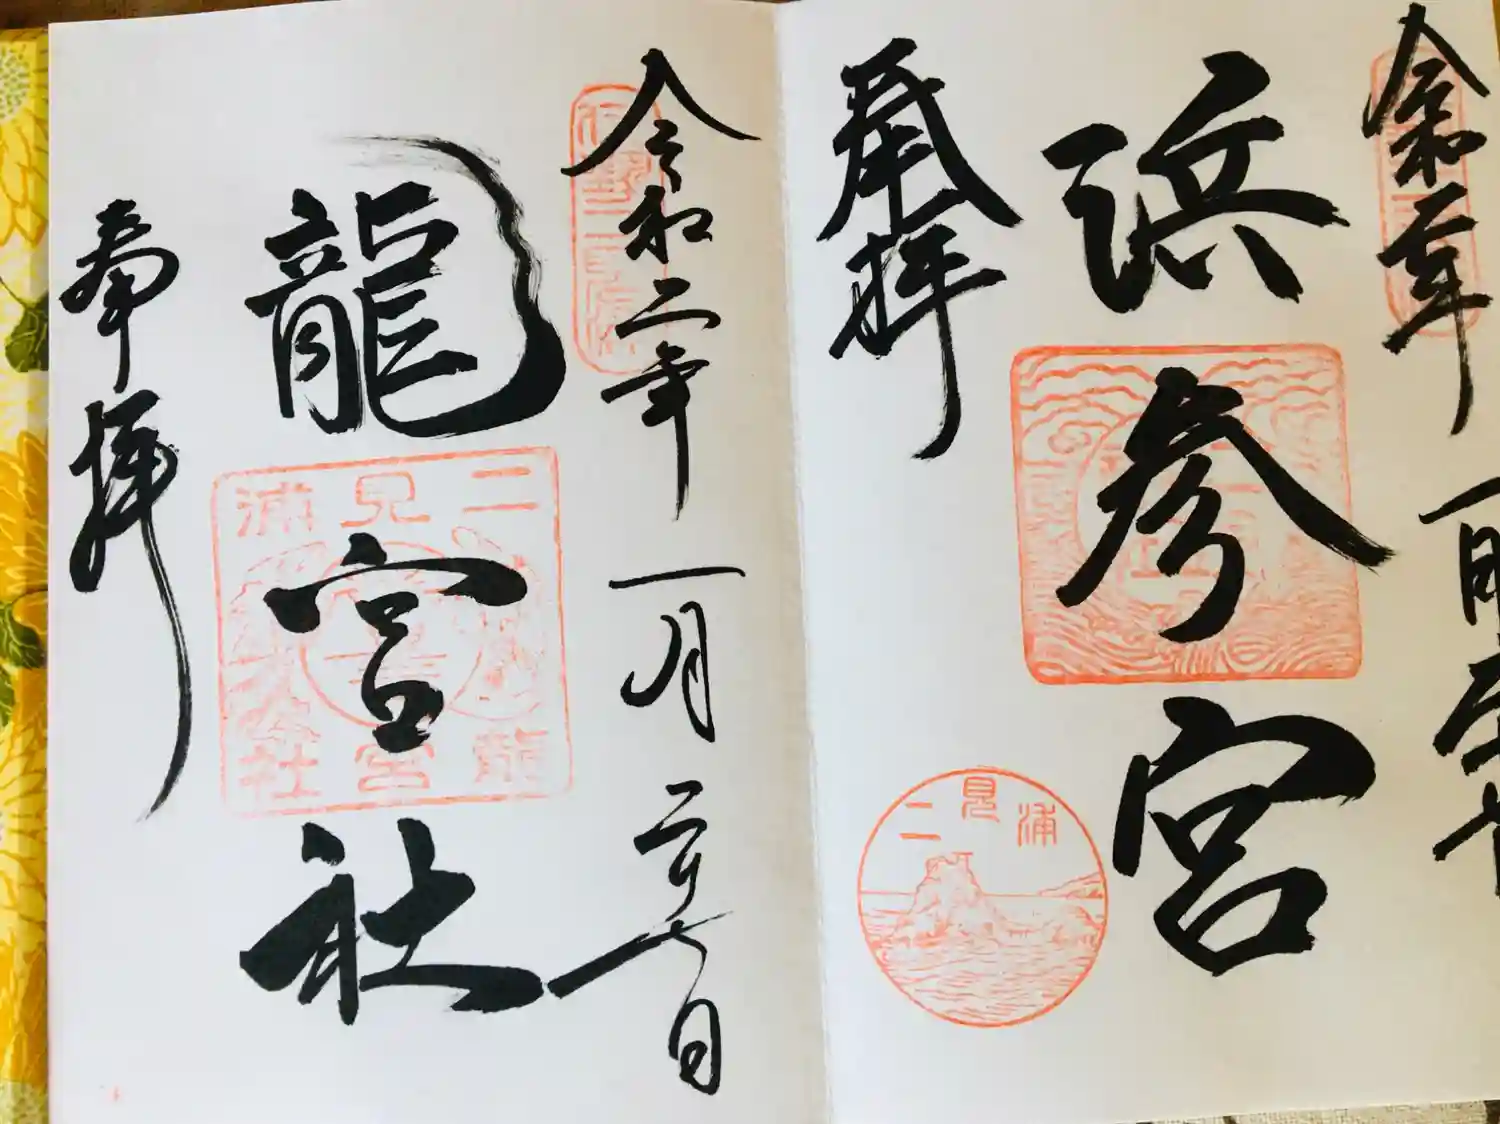 令和二年
浜参宮
二見浦
奉拝
令和二年一月二十七日
龍宮社
二見浦
龍宮社
奉拝